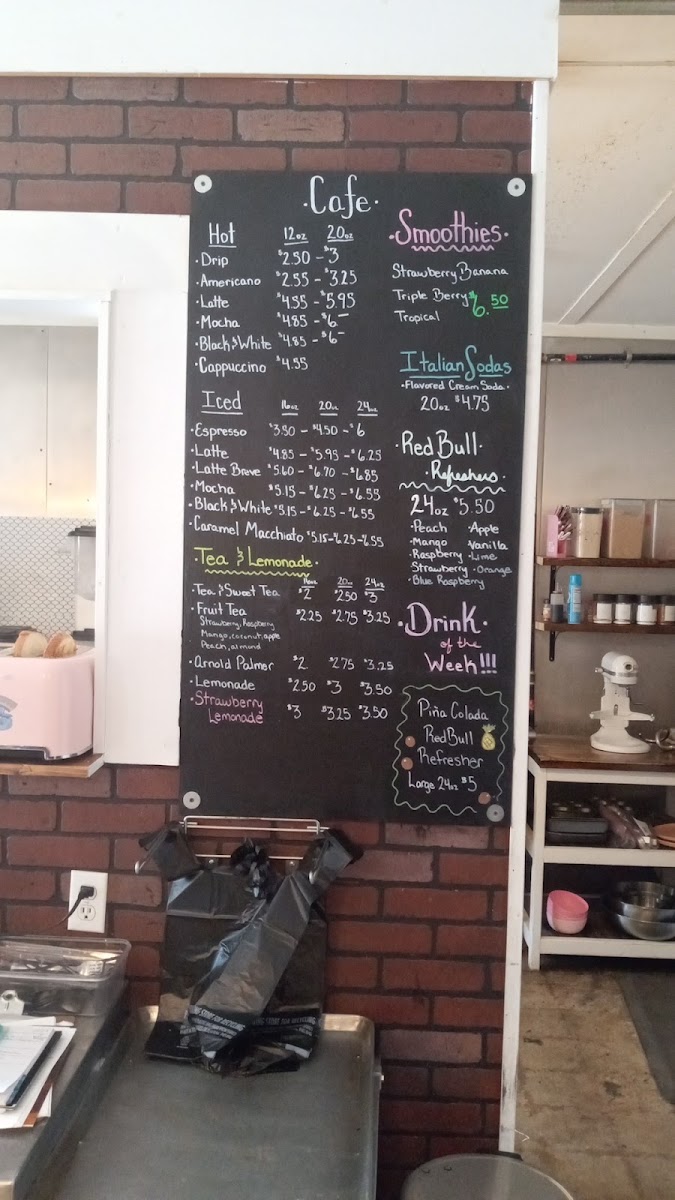 ·Cafe·
Hot 12oz 20oz
·Drip $2.50 - $3
·Americano $2.55 - $3.25
·Latte $4.55 - $5.95
·Mocha $4.85 - $6-
·Black & White $4.85 - $6-
·Cappuccino $4.55
Iced 16oz 20oz 24oz
·Espresso $3.50 - $4.50 - $6
·Latte $4.85 - $5.95 - $6.25
·Latte Breve $5.60 - $6.70 - $6.85
·Mocha $5.15 - $6.25 - $6.55
·Black & White $5.15 - $6.25 - $6.55
·Caramel Macchiato $5.15 - 6.25 - 6.55
·Tea & Lemonade·
16oz 20oz 24oz
·Tea & Sweet Tea $2 $2.50 $3
·Fruit Tea $2.25 $2.75 $3.25
Strawberry, Raspberry
Mango, coconut, apple
Peach, almond
·Arnold Palmer $2. $2.75 $3.25
·Lemonade $2.50 $3 $3.50
·Strawberry
Lemonade $3 $3.25 $3.50
·Smoothies·
Strawberry Banana
Triple Berry $6.50
Tropical
Italian Sodas
·Flavored Cream Soda·
20oz $4.75
·Red Bull·
·Refreshers·
24oz $5.50
·Peach ·Apple
·Mango ·Vanilla
·Raspberry ·Lime
·Strawberry ·Orange
·Blue Raspberry
·Drink·
of the
Week!!!
Piña Colada
Red Bull
Refresher
Large 24oz $5